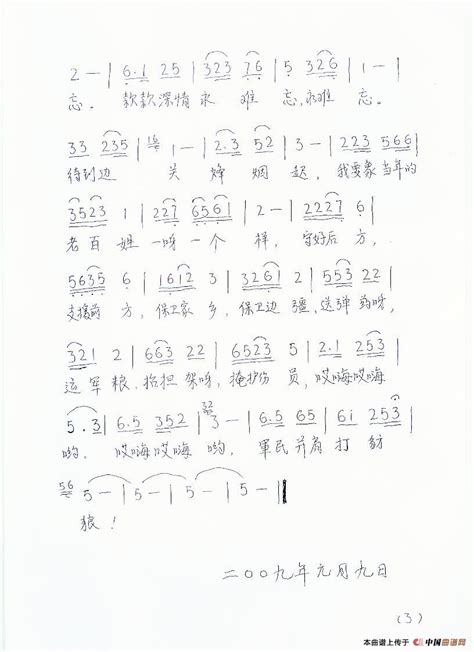 2 — | 6.1 25 | 323 76 | 5 326 | 1 — |
忘。 款款深情永 难 忘,永难 忘。
33 235 | 16 1 — | 2.3 52 | 3 — | 223 566 |
待到边 关 烽 烟 起, 我要象当年的
3523 1 | 2227 6561 | 2 — | 2227 6 |
老百 姓 一呀一个 样, 守好后 方,
5635 6 | 1612 3 | 3261 2 | 553 22 |
支援前 方, 保卫家 乡, 保卫边 疆,送弹 药呀,
321 2 | 663 22 | 6523 5 | 2.1 253 |
运军 粮, 抬担 架呀, 掩护伤 员, 哎嗨哎嗨
5.3 | 6.5 352 | 32 3 — | 6.5 65 | 61 253 |
哟, 哎嗨哎嗨 哟, 軍民并肩 打 豺
56 5 — | 5 — | 5 — | 5 — ‖
狼!
二〇〇九年元月九日
(3)
本曲谱上传于 中国曲谱网